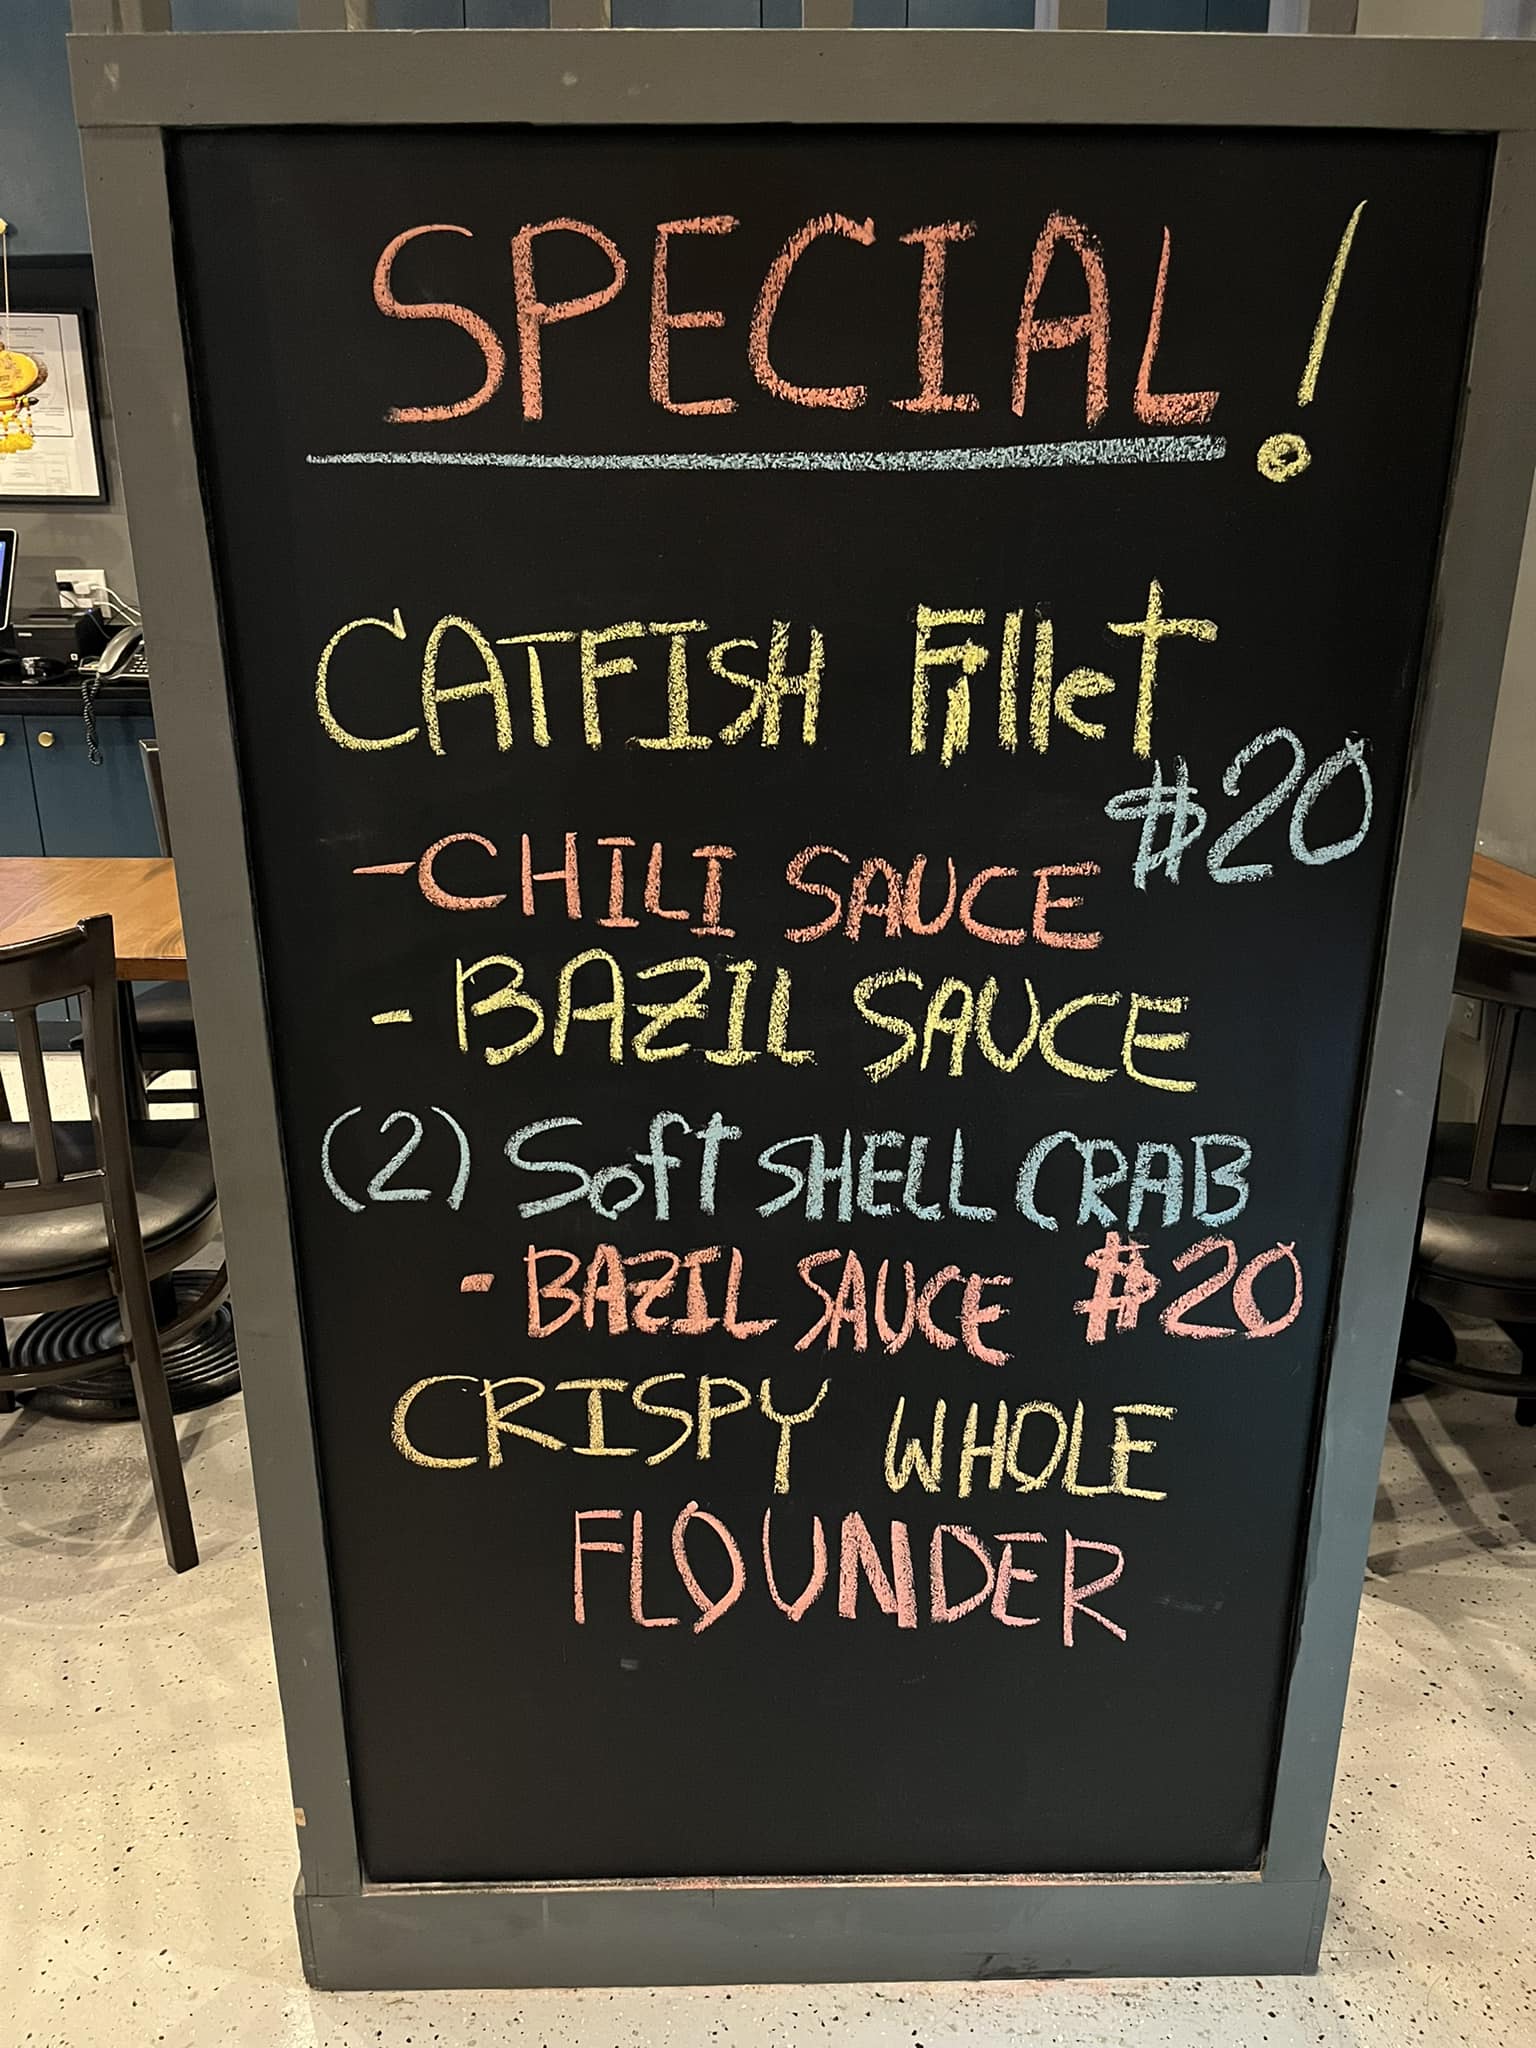 SPECIAL!
CATFISH Fillet
$20
-CHILI SAUCE
- BAZIL SAUCE
(2) Soft SHELL CRAB
- BAZIL SAUCE $20
CRISPY WHOLE
FLOUNDER